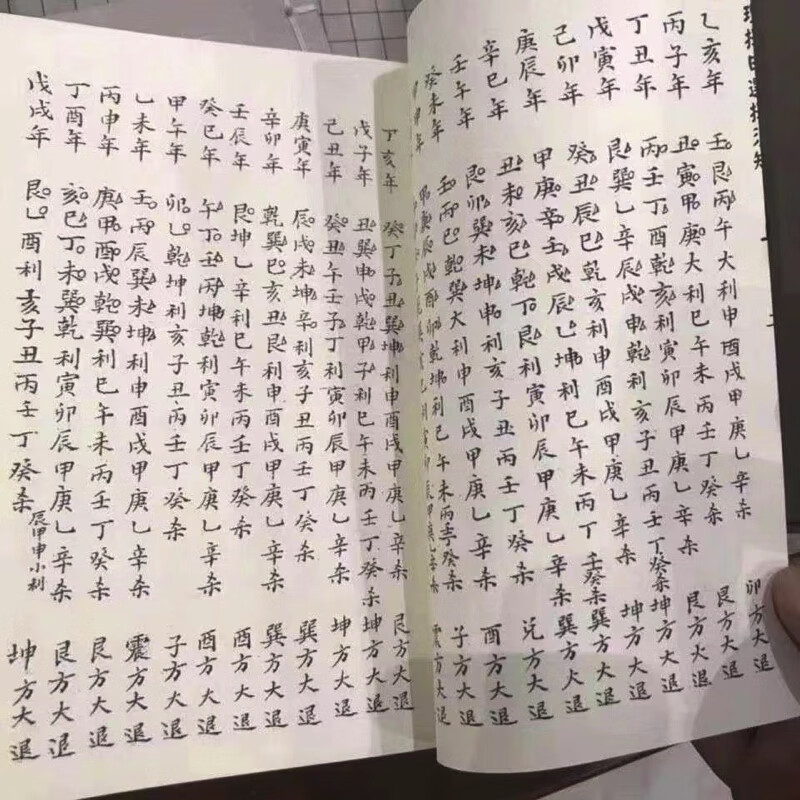 乙亥年 壬艮丙午大利申酉戌甲庚乙辛杀 卯方大退
丙子年 丑寅甲庚大利巳午未丙壬丁癸杀 艮方大退
丁丑年 丙壬丁酉乾亥利寅卯辰甲庚乙辛杀 艮方大退
戊寅年 艮巽乙辛辰戌申乾利亥子丑丙壬丁癸杀 坤方大退
己卯年 癸丑辰巳乾亥利申酉戌甲庚乙辛杀 坤方大退
庚辰年 甲庚辛壬戌辰乙坤利巳午未丙丁壬癸杀 巽方大退
辛巳年 丑未亥巳乾丁艮利寅卯辰甲庚乙辛杀 巽方大退
壬午年 艮卯巽未坤申利亥子丑丙壬丁癸杀 兑方大退
癸未年 壬丙巳乾巽大利申酉戌甲庚乙辛杀 酉方大退
甲庚辰戌酉卯乾坤利巳午未丙壬癸杀 子方大退
利寅卯辰甲庚乙辛杀 震方大退
丁亥年 癸丁子丑巽坤利申酉戌甲庚乙辛杀 艮方大退
戊子年 丑巽申戌乾甲子利巳午未丙壬丁癸杀 坤方大退
己丑年 癸丑午壬子丁利寅卯辰甲庚乙辛杀 坤方大退
庚寅年 辰戌未坤辛利亥子丑丙壬丁癸杀 巽方大退
辛卯年 乾巽巳亥丑艮利申酉戌甲庚乙辛杀 巽方大退
壬辰年 艮坤乙辛利巳午未丙壬丁癸杀 酉方大退
癸巳年 午丁壬丙坤乾利寅卯辰甲庚乙辛杀 酉方大退
甲午年 卯乙乾坤利亥子丑丙壬丁癸杀 子方大退
乙未年 壬丙辰巽未坤利申酉戌甲庚乙辛杀 震方大退
丙申年 庚甲酉戌乾巽利巳午未丙壬丁癸杀 艮方大退
丁酉年 亥巳丁未巽乾利寅卯辰甲庚乙辛杀 艮方大退
戊戌年 艮乙酉利亥子丑丙壬丁癸杀 辰甲申小利 坤方大退